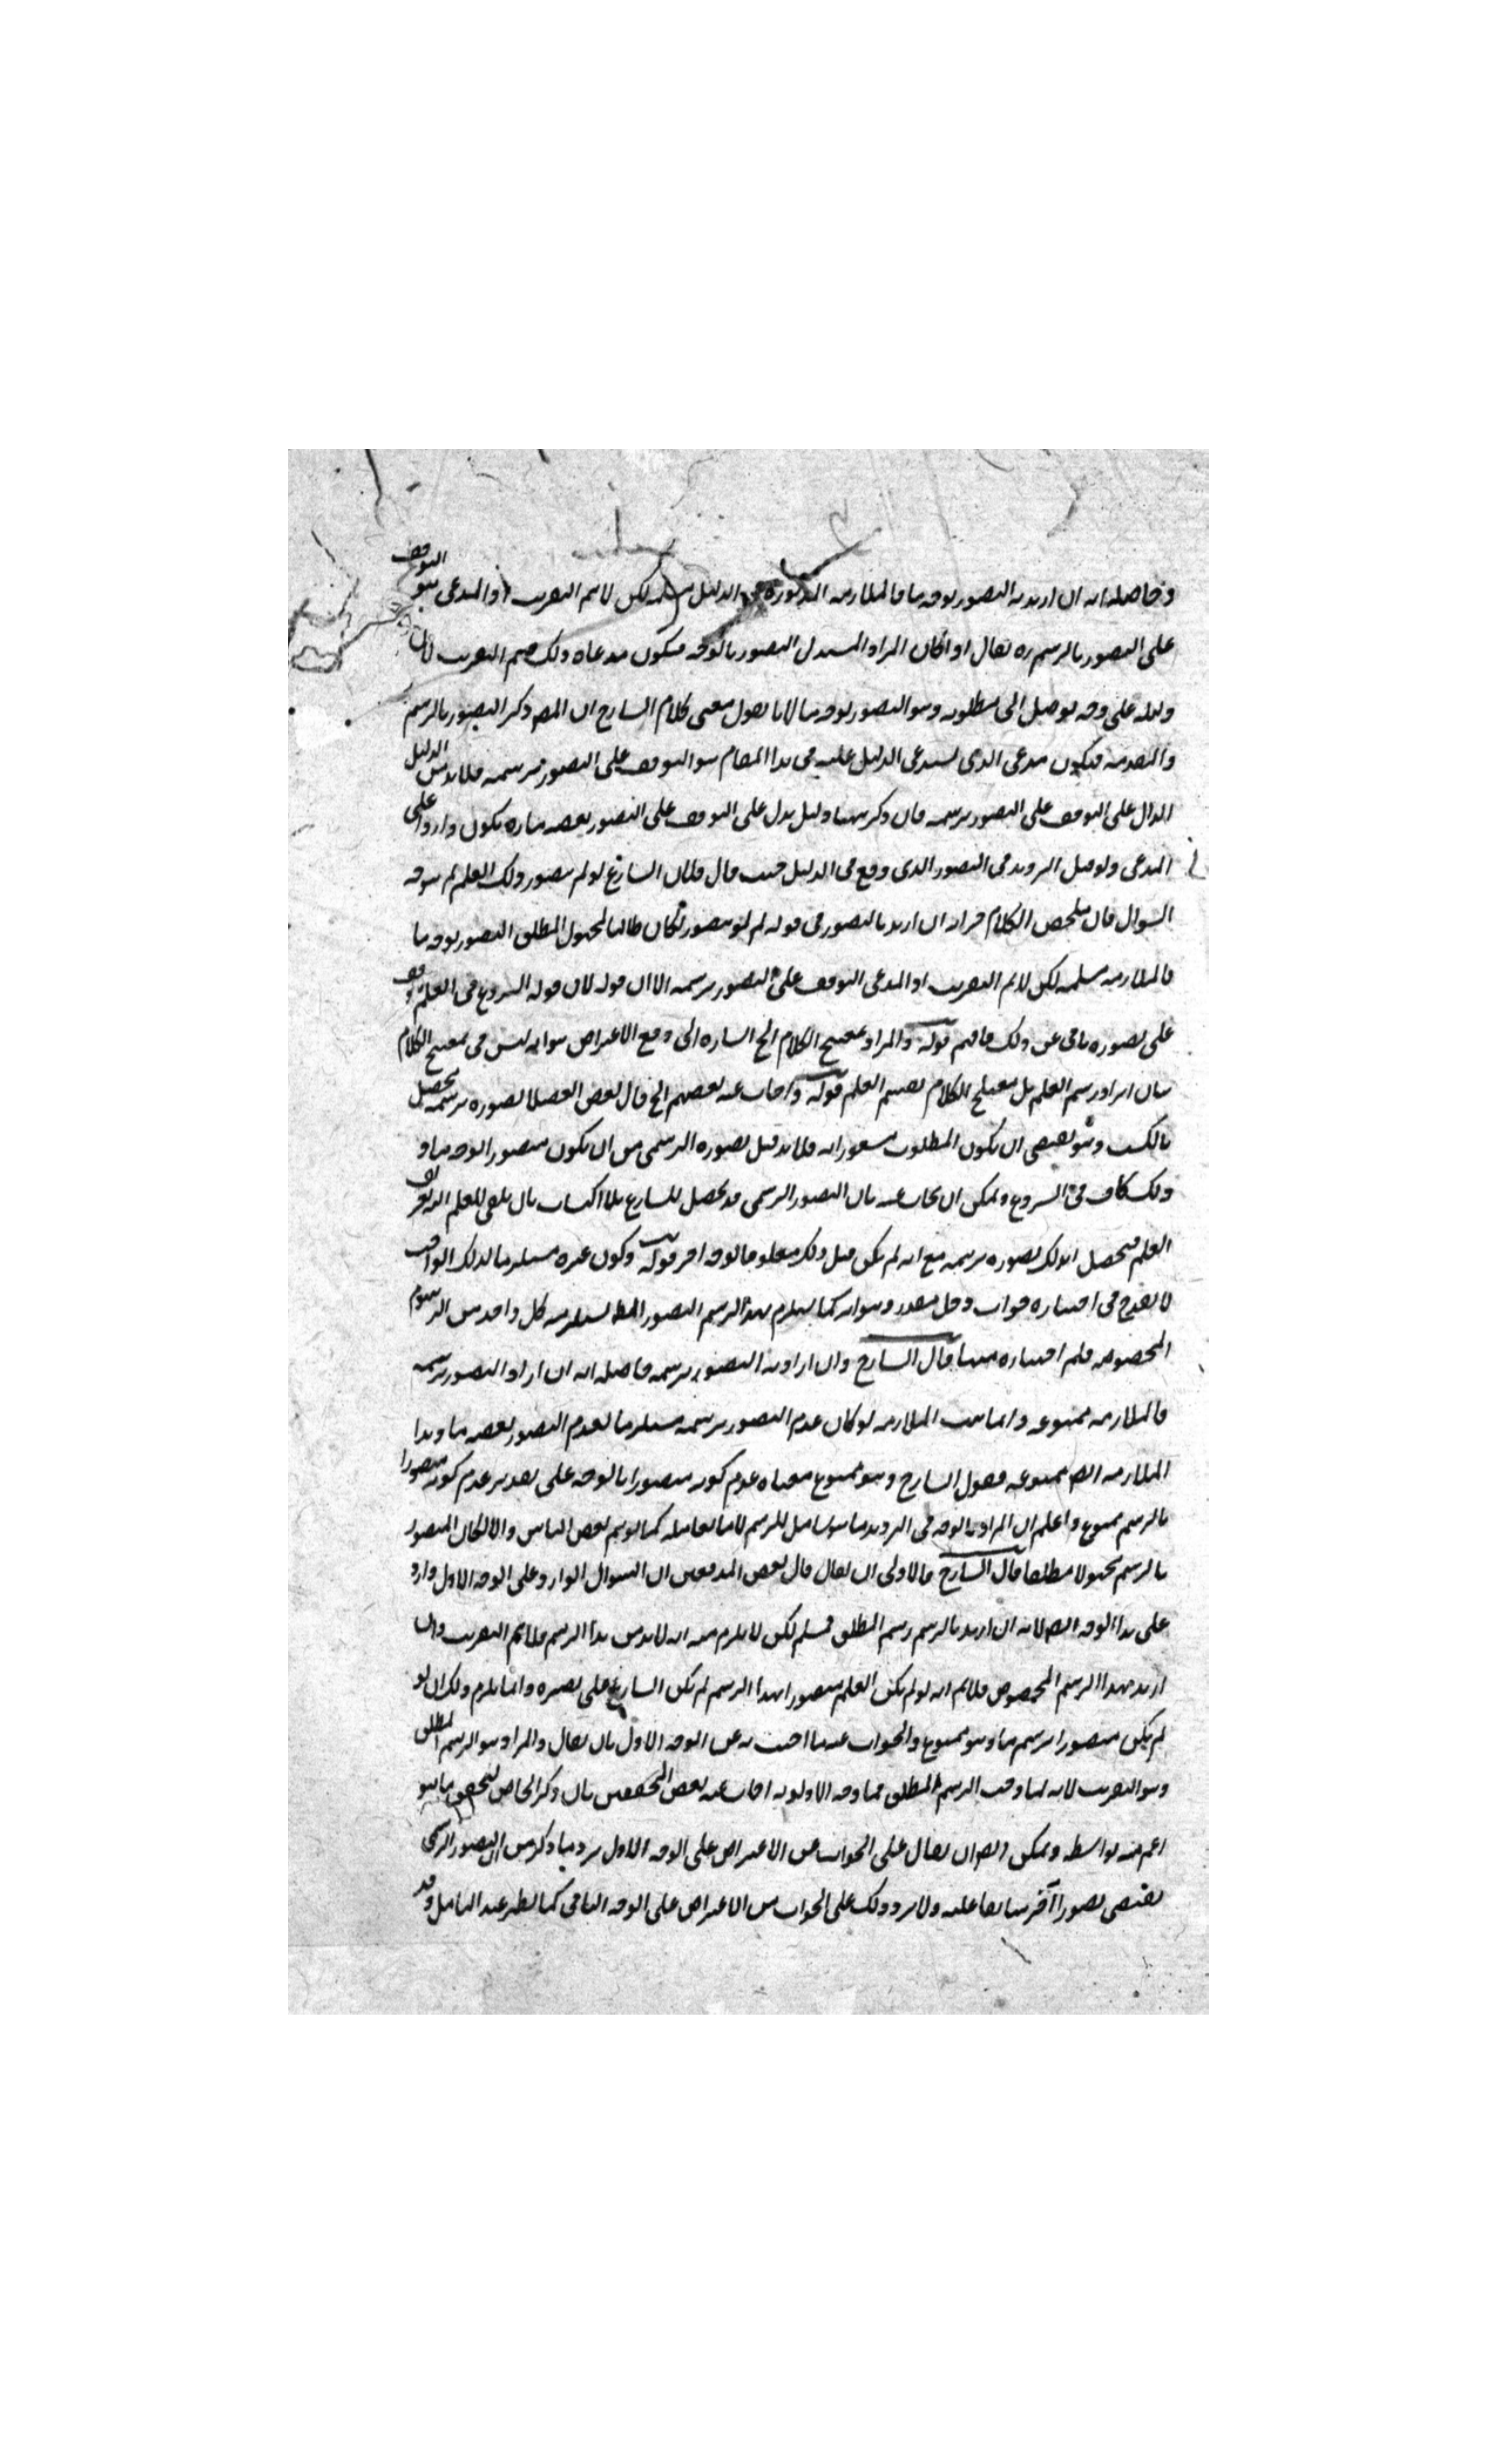 وحاصله انه ان اريد به التصور بوجه ما فالملازمة المذكورة في الدليل مسلمة لكن لا يتم التقريب اذ المدعى هو التوقف
على التصور بالرسم يقال اذا كان المراد المستدل التصور بالوجه فيكون مدعاه ذلك فيتم التقريب لان
دليله على وجه يوصل الى مطلوبه وهو التصور بوجه ما لانا نقول معنى كلام الشارح ان المصر ذكر التصور بالرسم
والمقدمة فيكون مدعى الذى يستدعى الدليل عليه فى هذا المقام هو التوقف على التصور برسمه فلا بد من الدليل
الدال على التوقف على التصور برسمه فان ذكر ههنا دليل يدل على التوقف على التصور بوجه ما يكون واردا على
المدعى ولو قيل الترديد فى التصور الذى وقع فى الدليل حيث قال فلان الشارع لو لم يتصور ذلك العلم لم يتوجه
السوال فان ملخص الكلام ان اريد بالتصور فى قوله لو لم يتصور لكان طالبا للمجهول المطلق التصور بوجه ما
فالملازمة مسلمة لكن لا يتم التقريب اذ المدعى التوقف على التصور برسمه الا ان قوله لان قوله الشروع فى العلم يتوقف
على تصوره باقى عن ذلك فافهم قوله والمراد بتصحيح الكلام الخ اشاره الى دفع الاعتراض هو انه ليس فى تصحيح الكلام
بيان ايراد رسم العلم بل تصحيح الكلام تقسيم العلم قوله واجاب عنه بعضهم الخ قال بعض الفضلا تصوره برسمه يحصل
بالكسب وهو يقتضى ان يكون المطلوب مشعورا به فلا بد قبل تصوره الرسمى من ان يكون متصورا بوجه ما و
ذلك كاف فى الشروع ويمكن ان يجاب عنه بان التصور الرسمى قد يحصل للشارع بلا اكتساب بان يلقى المعلم اليه تعريف
العلم فيحصل له ذلك تصوره برسمه مع انه لم يكن قبل ذلك معلوما بوجه اخر قوله وكون غيره مستلزما لذلك الواجب
لا يقدح فى اختياره جواب دخل مقدر وهو انه كما يستلزم هذا الرسم التصور المط يستلزمه كل واحد من الرسوم
المخصوصه فلم اختياره منها قال الشارح وان اراد به التصور برسمه حاصله انه ان اراد التصور برسمه
فالملازمه ممنوعه وانما تثبت الملازمه لو كان عدم التصور برسمه مستلزما لعدم التصور بوجه ما وهذا
الملازمه ايضا ممنوعه فقول الشارح وهو ممنوع معناه عدم كونه متصورا بالوجه على تقدير عدم كونه متصورا
بالرسم ممنوع واعلم ان المراد بالوجه فى الترديد ما هو شامل للرسم لا ما يقابله كما توهم بعض الناس والا لكان المتصور
بالرسم مجهولا مطلقا قال الشارح فالاولى ان يقال قال بعض المدققين ان السوال الوارد على الوجه الاول وارد
على هذا الوجه ايضا لانه ان اريد بالرسم رسم المطلق فمسلم لكن لا يلزم منه انه لا بد من هذا الرسم فلا يتم التقريب وان
اريد بهذا الرسم المخصوص فلا نم انه لو لم يكن العلم متصورا بهذا الرسم لم يكن الشارع على بصيره وانما يلزم ذلك ان لو
لم يكن متصورا برسم ما وهو ممنوع والجواب عنه ما اجبت به عن الوجه الاول بان يقال والمراد هو الرسم المطلق
وهو التقريب لانه لما وجب الرسم المطلق فما وجه الاولويه اجاب عنه بعض المحققين بان ذكر الخاص لتحصيل ما هو
اعم منه بواسطه ويمكن ايضا ان يقال على الجواب عن الاعتراض على الوجه الاول يرد ما ذكر من ان التصور الرسمى
يقتضى تصورا آخر سابقا عليه ولا يرد ذلك على الجواب من الاعتراض على الوجه الثانى كما يظهر عند التامل وقد